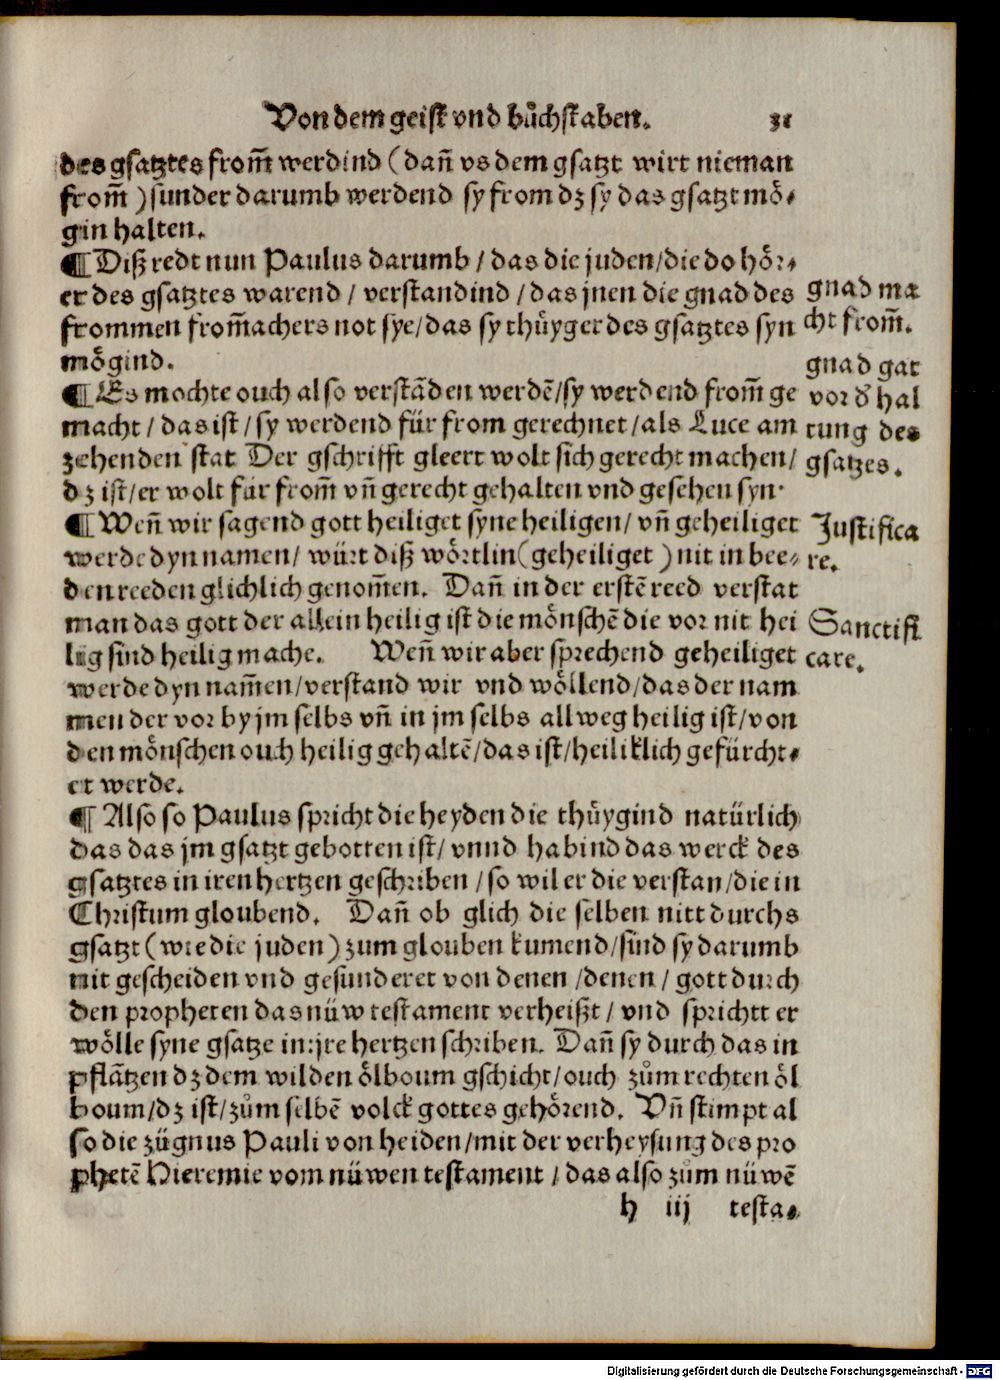 Von dem geist vnd bůchstaben. 31
des gsatztes from̄ werdind (dan̄ vs dem gsatzt wirt nieman
from̄) sunder darumb werdend sy from dz sy das gsatzt mö⸗
gin halten.
¶ Diß redt nun Paulus darumb / das die juden / die do hör⸗
er des gsatztes warend / verstandind / das jnen die gnad des
frommen from̄achers not sye / das sy thüyger des gsatztes syn
mögind.
¶ Es mochte ouch also verstāden werdē / sy werdend from̄ ge
macht / das ist / sy werdend für from gerechnet / als Luce am
zehenden stat Der gschrifft gleert wolt sich gerecht machen /
dz ist / er wolt für from̄ vn̄ gerecht gehalten vnd gesehen syn.
¶ Wen̄ wir sagend gott heiliget syne heiligen / vn̄ geheiliget
werde dyn namen / würt diß wörtlin (geheiliget) nit in bee⸗
den reeden glichlich genom̄en. Dan̄ in der erstē reed verstat
man das gott der allein heilig ist die mönschē die vor nit hei
lig sind heilig mache. Wen̄ wir aber sprechend geheiliget
werde dyn nam̄en / verstand wir vnd wöllend / das der nam
men der vor by jm selbs vn̄ in jm selbs allweg heilig ist / von
den mönschen ouch heilig gehaltē / das ist / heiliklich gefürcht⸗
et werde.
¶ Also so Paulus spricht die heyden die thüygind natürlich
das das jm gsatzt gebotten ist / vnnd habind das werck des
gsatztes in iren hertzen geschriben / so wil er die verstan / die in
Christum gloubend. Dan̄ ob glich die selben nitt durchs
gsatzt (wie die juden) zum glouben kumend / sind sy darumb
nit gescheiden vnd gesünderet von denen / denen / gott durch
den propheten das nüw testament verheißt / vnd sprichtt er
wölle syne gsatze in jre hertzen schriben. Dan̄ sy durch das in
pflātzen dz dem wilden ölboum gschicht / ouch zům rechten öl
boum / dz ist / zům selbē volck gottes gehörend. Vn̄ stimpt al
so die zügnus Pauli von heiden / mit der verheysung des pro
phetē Hieremie vom nüwen testament / das also zům nüwē
h iij testa⸗
gnad ma
cht from̄.
gnad gat
vor d' hal
tung des
gsatzes.
Justifica
re.
Sanctifi
care.
Digitalisierung gefördert durch die Deutsche Forschungsgemeinschaft - DFG